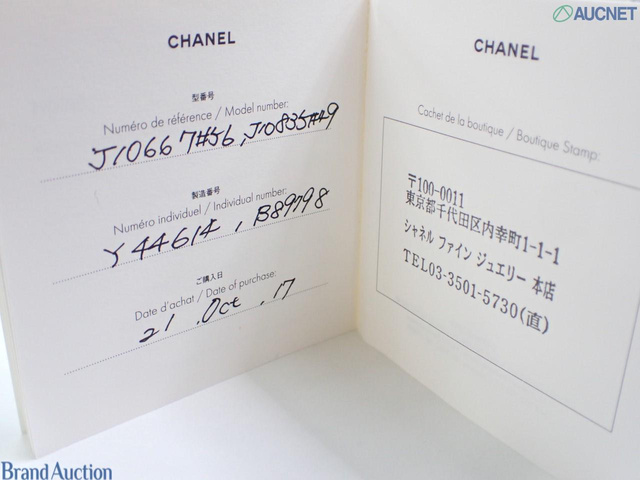 CHANEL
型番号
Numéro de référence / Model number:
J10667#56, J10835#49
製造番号
Numéro individuel / Individual number:
Y44614, B89798
ご購入日
Date d'achat / Date of purchase:
21 .Oct .17
CHANEL
Cachet de la boutique / Boutique Stamp:
〒100-0011
東京都千代田区内幸町1-1-1
シャネル ファイン ジュエリー 本店
TEL03-3501-5730(直)
AUCNET
Brand Auction